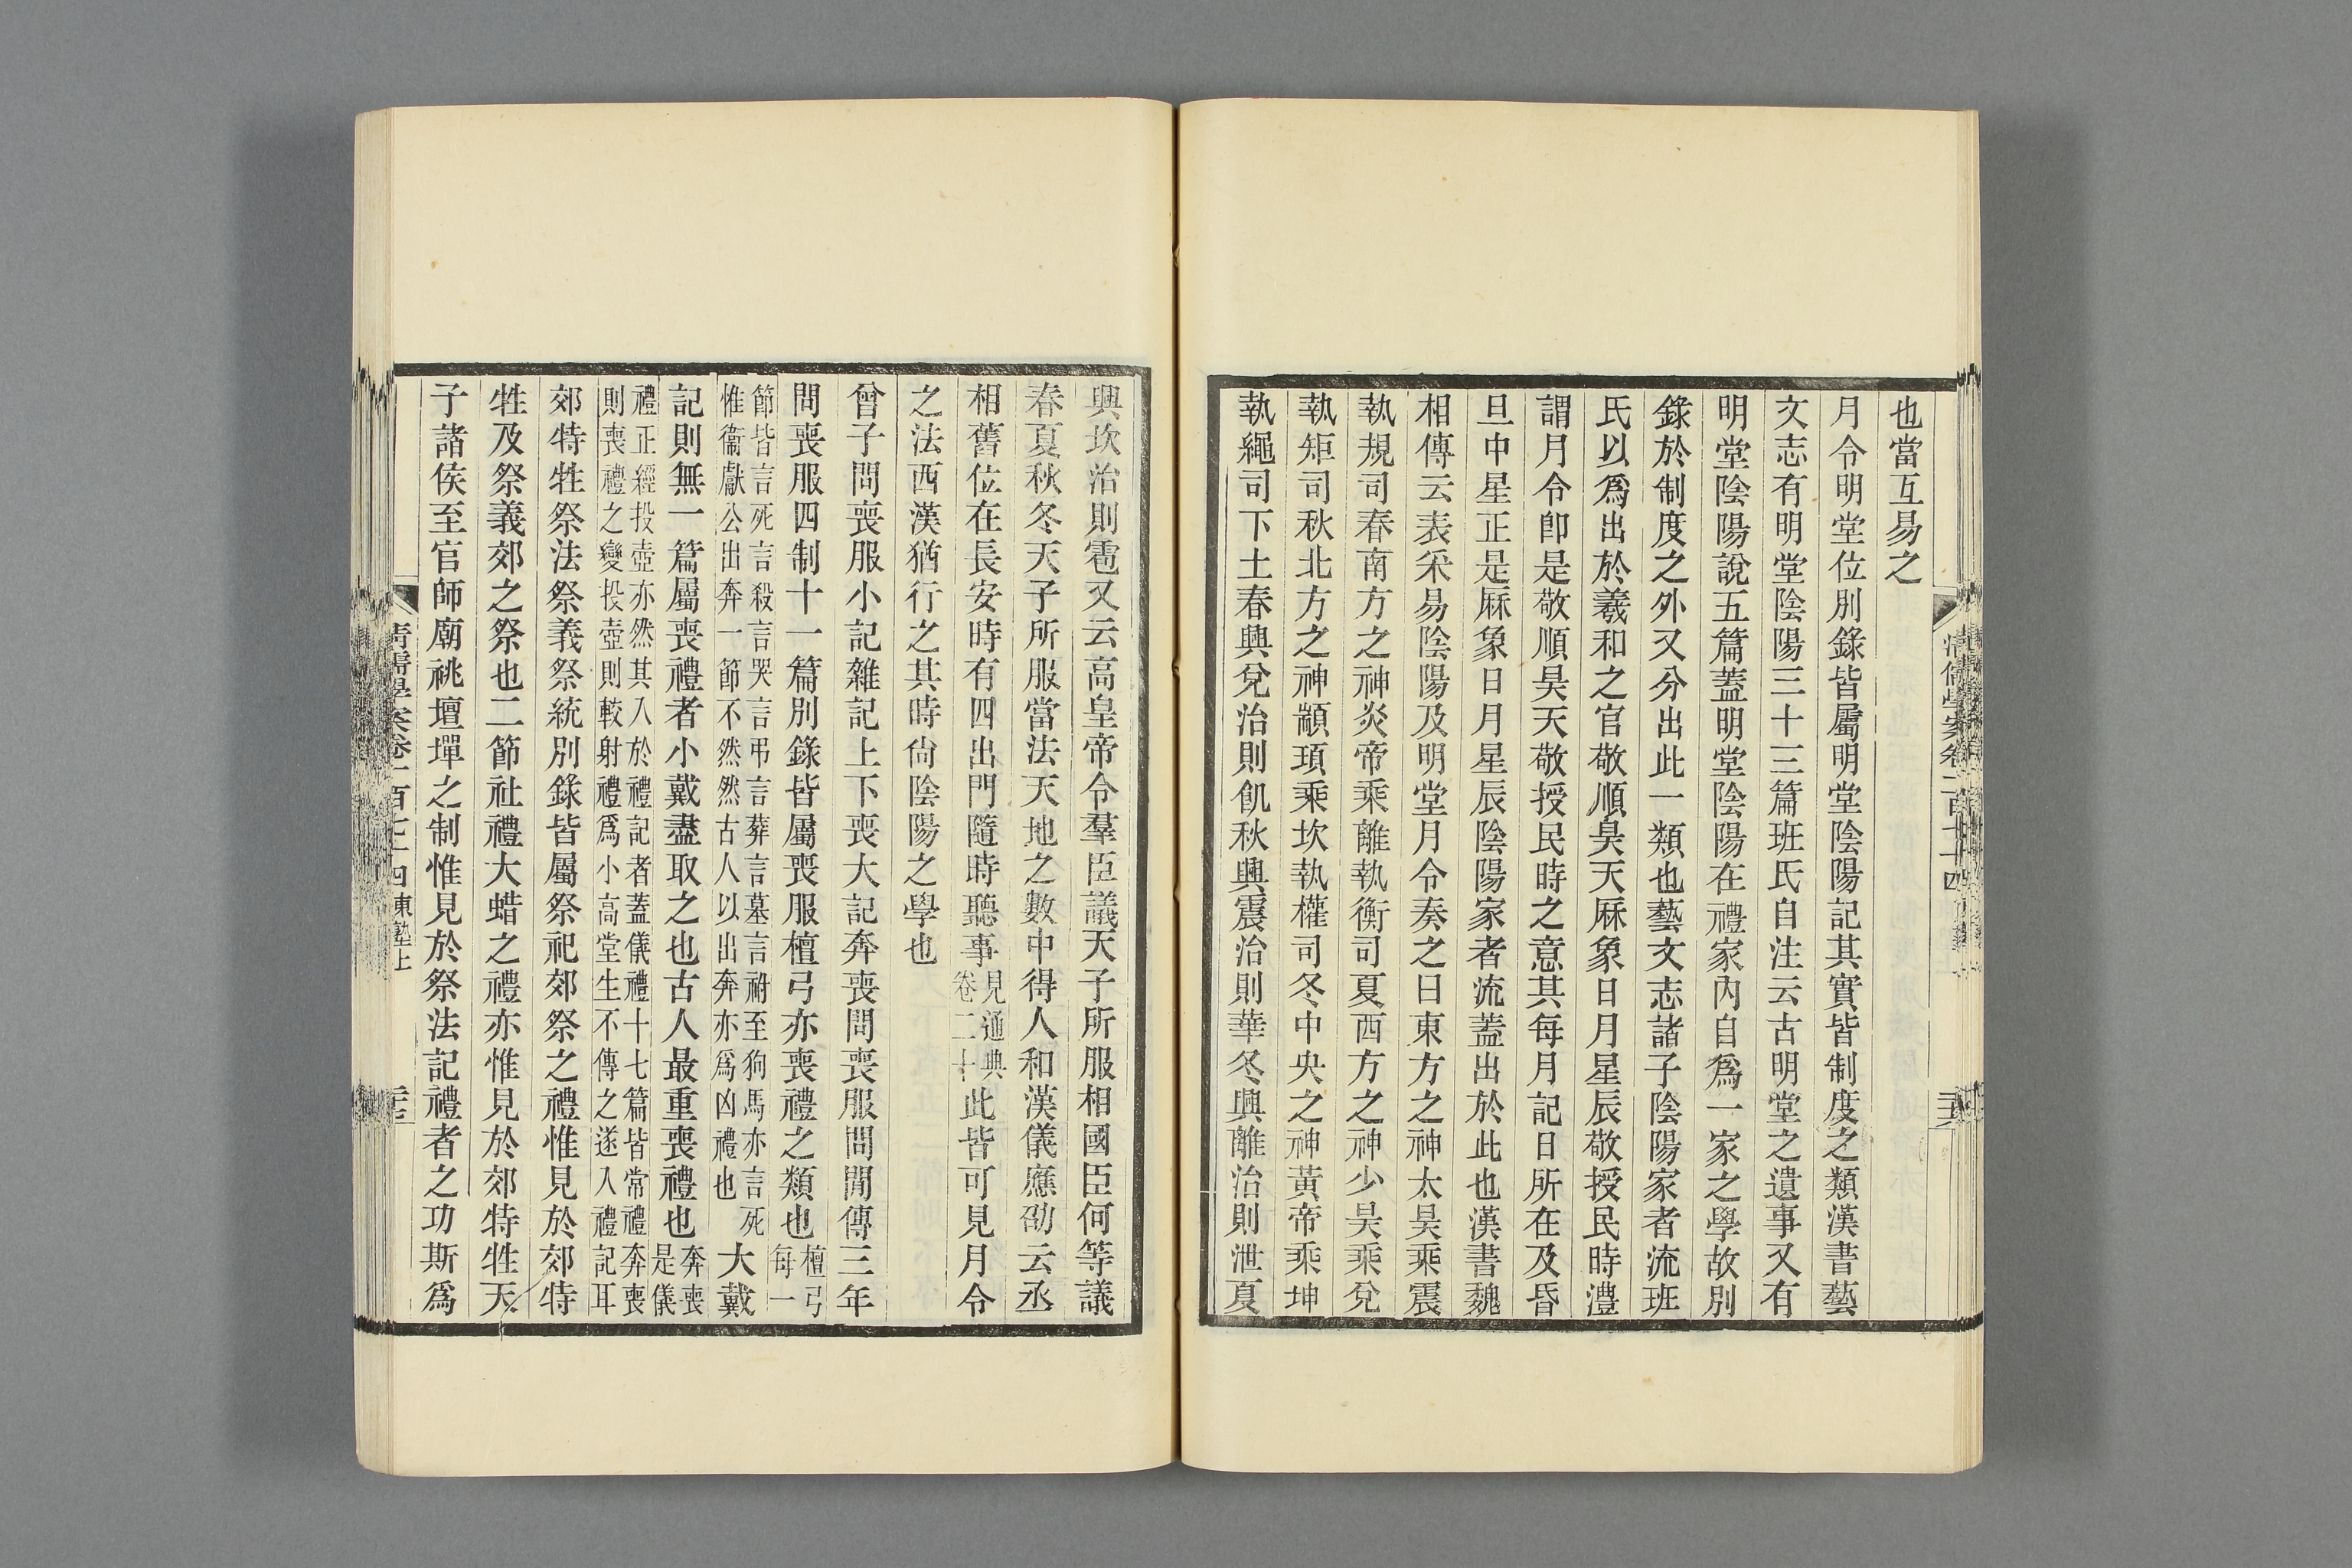 也當互易之
月令明堂位別錄皆屬明堂陰陽記其實皆制度之類漢書藝
文志有明堂陰陽三十三篇班氏自注云古明堂之遺事又有
明堂陰陽說五篇蓋明堂陰陽在禮家內自爲一家之學故別
錄於制度之外又分出此一類也藝文志諸子陰陽家者流班
氏以爲出於羲和之官敬順昊天厤象日月星辰敬授民時澧
謂月令卽是敬順昊天敬授民時之意其每月記日所在及昏
旦中星正是厤象日月星辰陰陽家者流蓋出於此也漢書魏
相傳云表采易陰陽及明堂月令奏之曰東方之神太昊乘震
執規司春南方之神炎帝乘離執衡司夏西方之神少昊乘兌
執矩司秋北方之神顓頊乘坎執權司冬中央之神黃帝乘坤
執繩司下土春興兌治則飢秋興震治則華冬興離治則泄夏
興坎治則雹又云高皇帝令羣臣議天子所服相國臣何等議
春夏秋冬天子所服當法天地之數中得人和漢儀應劭云丞
相舊位在長安時有四出門隨時聽事見通典卷二十此皆可見月令
之法西漢猶行之其時尙陰陽之學也
曾子問喪服小記雜記上下喪大記奔喪問喪服問閒傳三年
問喪服四制十一篇別錄皆屬喪服檀弓亦喪禮之類也檀弓每一
節皆言死言殺言哭言弔言葬言墓言祔至狗馬亦言死惟衞獻公出奔一節不然然古人以出奔亦爲凶禮也大戴
記則無一篇屬喪禮者小戴盡取之也古人最重喪禮也奔喪是儀
禮正經投壺亦然其入於禮記者蓋儀禮十七篇皆常禮奔喪則喪禮之變投壺則較射禮爲小高堂生不傳之遂入禮記耳
郊特牲祭法祭義祭統別錄皆屬祭祀郊祭之禮惟見於郊特
牲及祭義郊之祭也二節社禮大蜡之禮亦惟見於郊特牲天
子諸侯至官師廟祧壇墠之制惟見於祭法記禮者之功斯爲